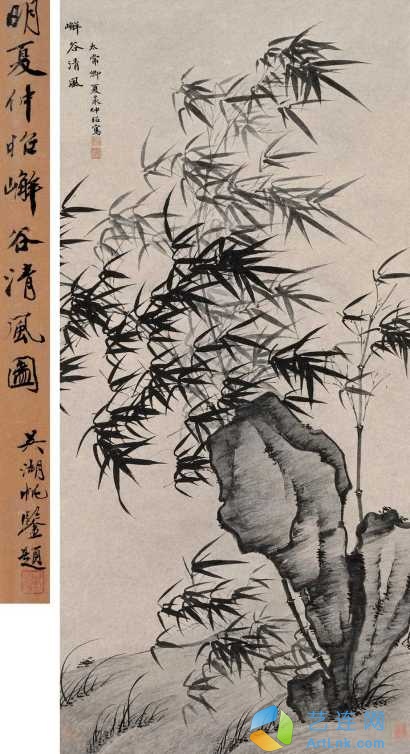 明夏仲昭嶰谷清風圖
吳湖帆鑒題
嶰谷清風
太常卿夏㫤仲昭寫
艺连网
ArtLook.com